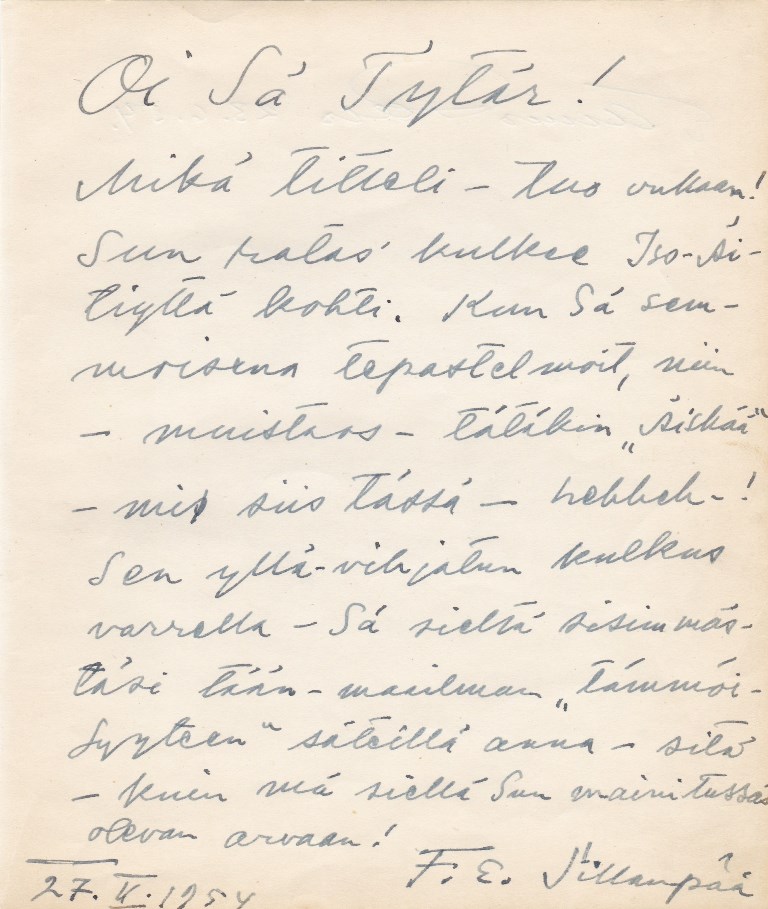 Oi Sä Tytär!
Mikä titteli – tuo
Sun ratas kulkee Iso-Äi-
tiyttä kohti. Kun Sä sem-
moisena tepastelmoit, niin
– muistaos – tätäkin „Äiskää“
– siis tässä – hehheh–!
Sen yllä-vihjatun kulkus
varrella – Sä sieltä sisimmäs-
täsi tään-maailman „tämmöi-
syyteen“ säteillä anna – sitä
– kuin mä siellä Sun mainitussas
olevan arvaan!
F. E. Sillanpää
27. II. 1954